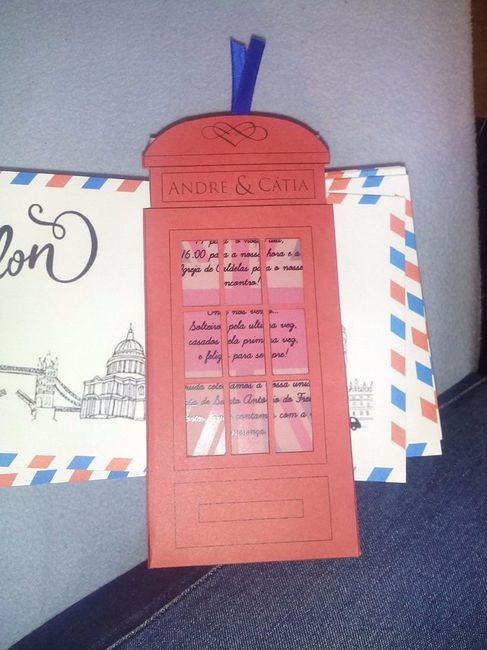 lon
ANDRÉ & CÁTIA
para o nosso
16.00 para a nossa hora e a
Igreja de Caldelas para o nosso
encontro!
Solteiros pela última vez,
casados pela primeira vez,
e felizes para sempre!
celebramos a nossa
de Santo António do
contamos com a
presença.